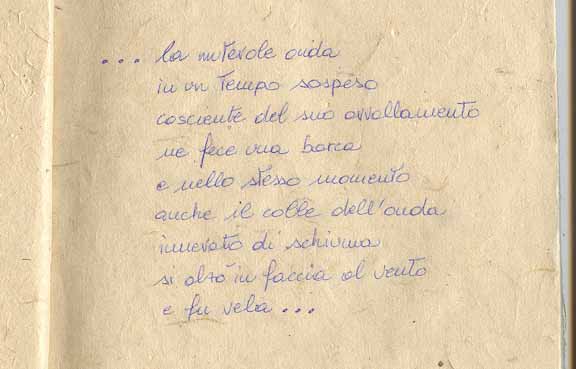 ... la mutevole onda
in un tempo sospeso
cosciente del suo avvallamento
ne fece una barca
e nello stesso momento
anche il colle dell'onda
innevato di schiuma
si alzò in faccia al vento
e fu vela ...